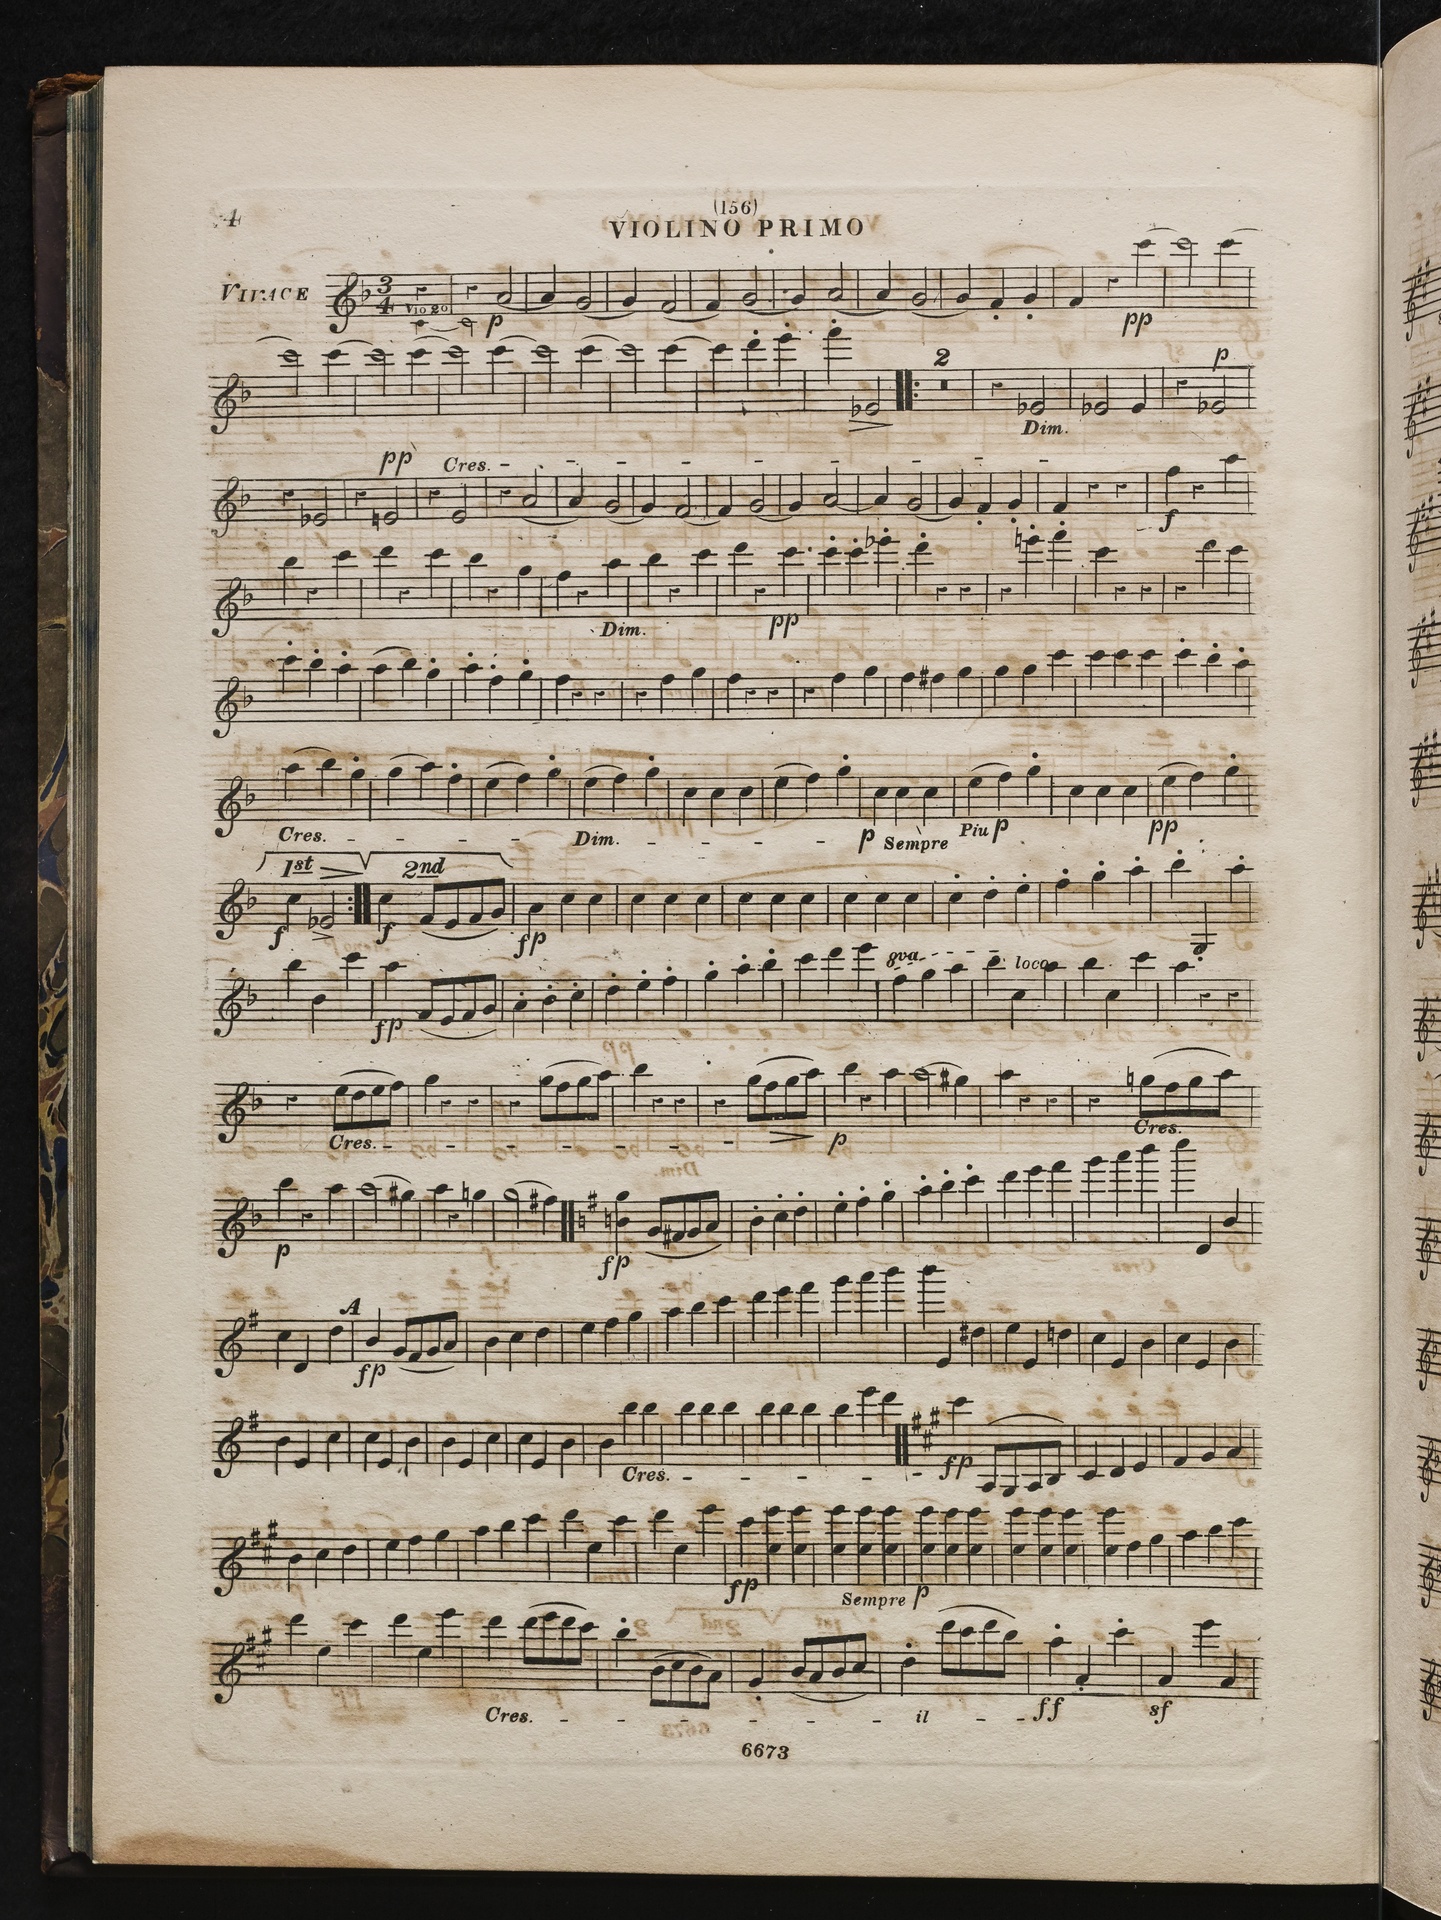 4
(156)
VIOLINO PRIMO
VIVACE
3
4
Vio 2o
p
pp
2
p
Dim.
pp
Cres.
f
Dim.
pp
Cres.
Dim.
p Sempre
Piu p
pp
1st
2nd
f
f
fp
8va
loco
fp
Cres.
p
Cres.
p
fp
A
fp
Cres.
fp
fp
Sempre p
Cres.
il
ff
sf
6673